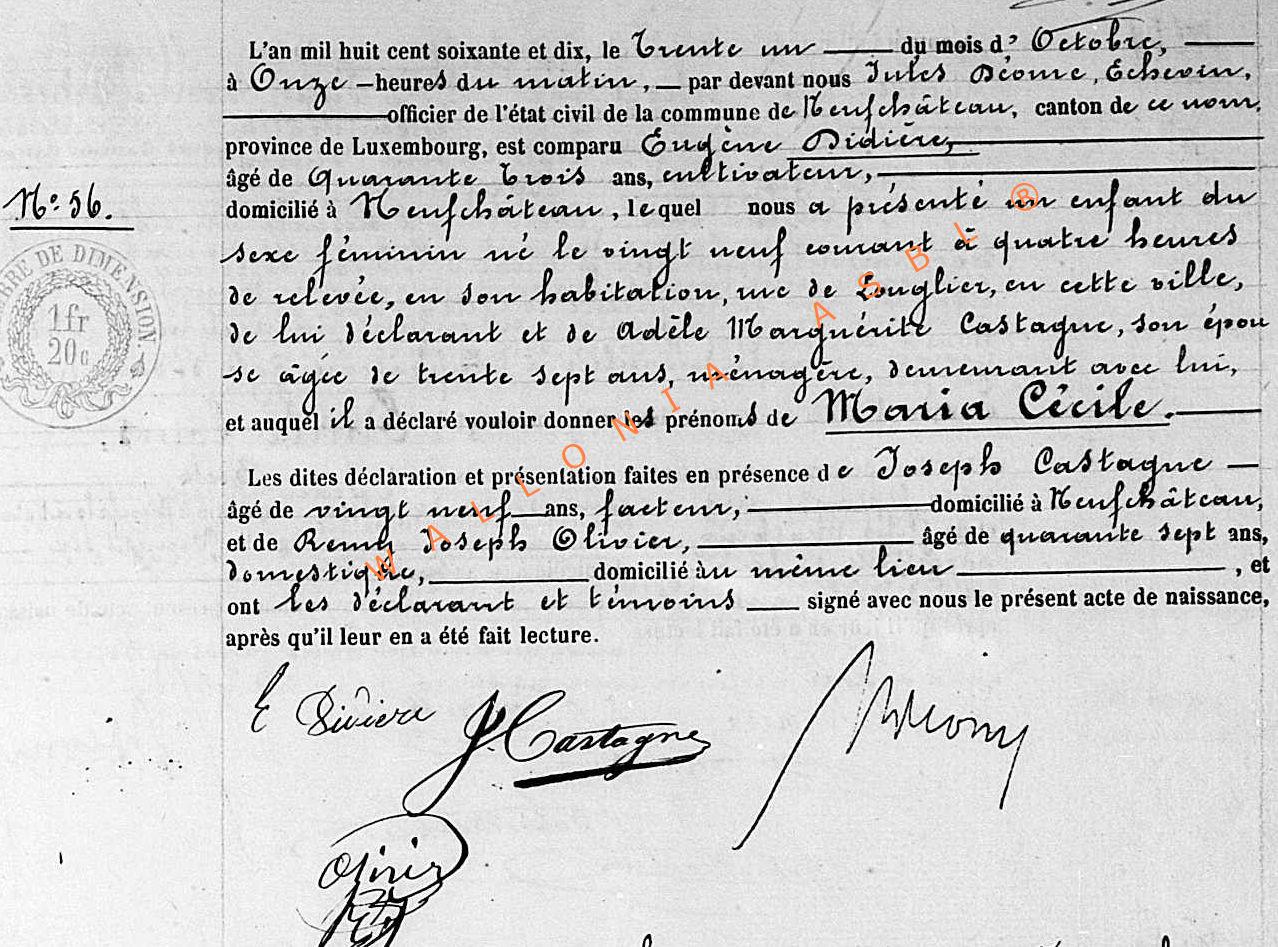 L'an mil huit cent soixante et dix, le Trente un du mois d' Octobre,
à Onze heures du matin, par devant nous Jules Déome, Echevin,
officier de l'état civil de la commune de Neufchâteau, canton de ce nom,
province de Luxembourg, est comparu Eugène Didière,
âgé de Quarante Trois ans, cultivateur,
No. 56.
domicilié à Neufchâteau, lequel nous a présenté un enfant du
sexe féminin né le vingt neuf courant à quatre heures
de relevée, en son habitation, rue de Longlier, en cette ville,
TIMBRE DE DIMENSION
1 fr
20 c
de lui déclarant et de Adèle Marguérite Castagne, son épou
se âgée de trente sept ans, ménagère, demeurant avec lui,
et auquel il a déclaré vouloir donner les prénoms de Maria Cécile.
Les dites déclaration et présentation faites en présence de Joseph Castagne
âgé de vingt neuf ans, facteur, domicilié à Neufchâteau,
et de Remy Joseph Olivier, âgé de quarante sept ans,
domestique, domicilié au même lieu, et
ont les déclarant et témoins signé avec nous le présent acte de naissance,
après qu'il leur en a été fait lecture.
E Didière
J. Castagne
WALLONIA ASBL ®